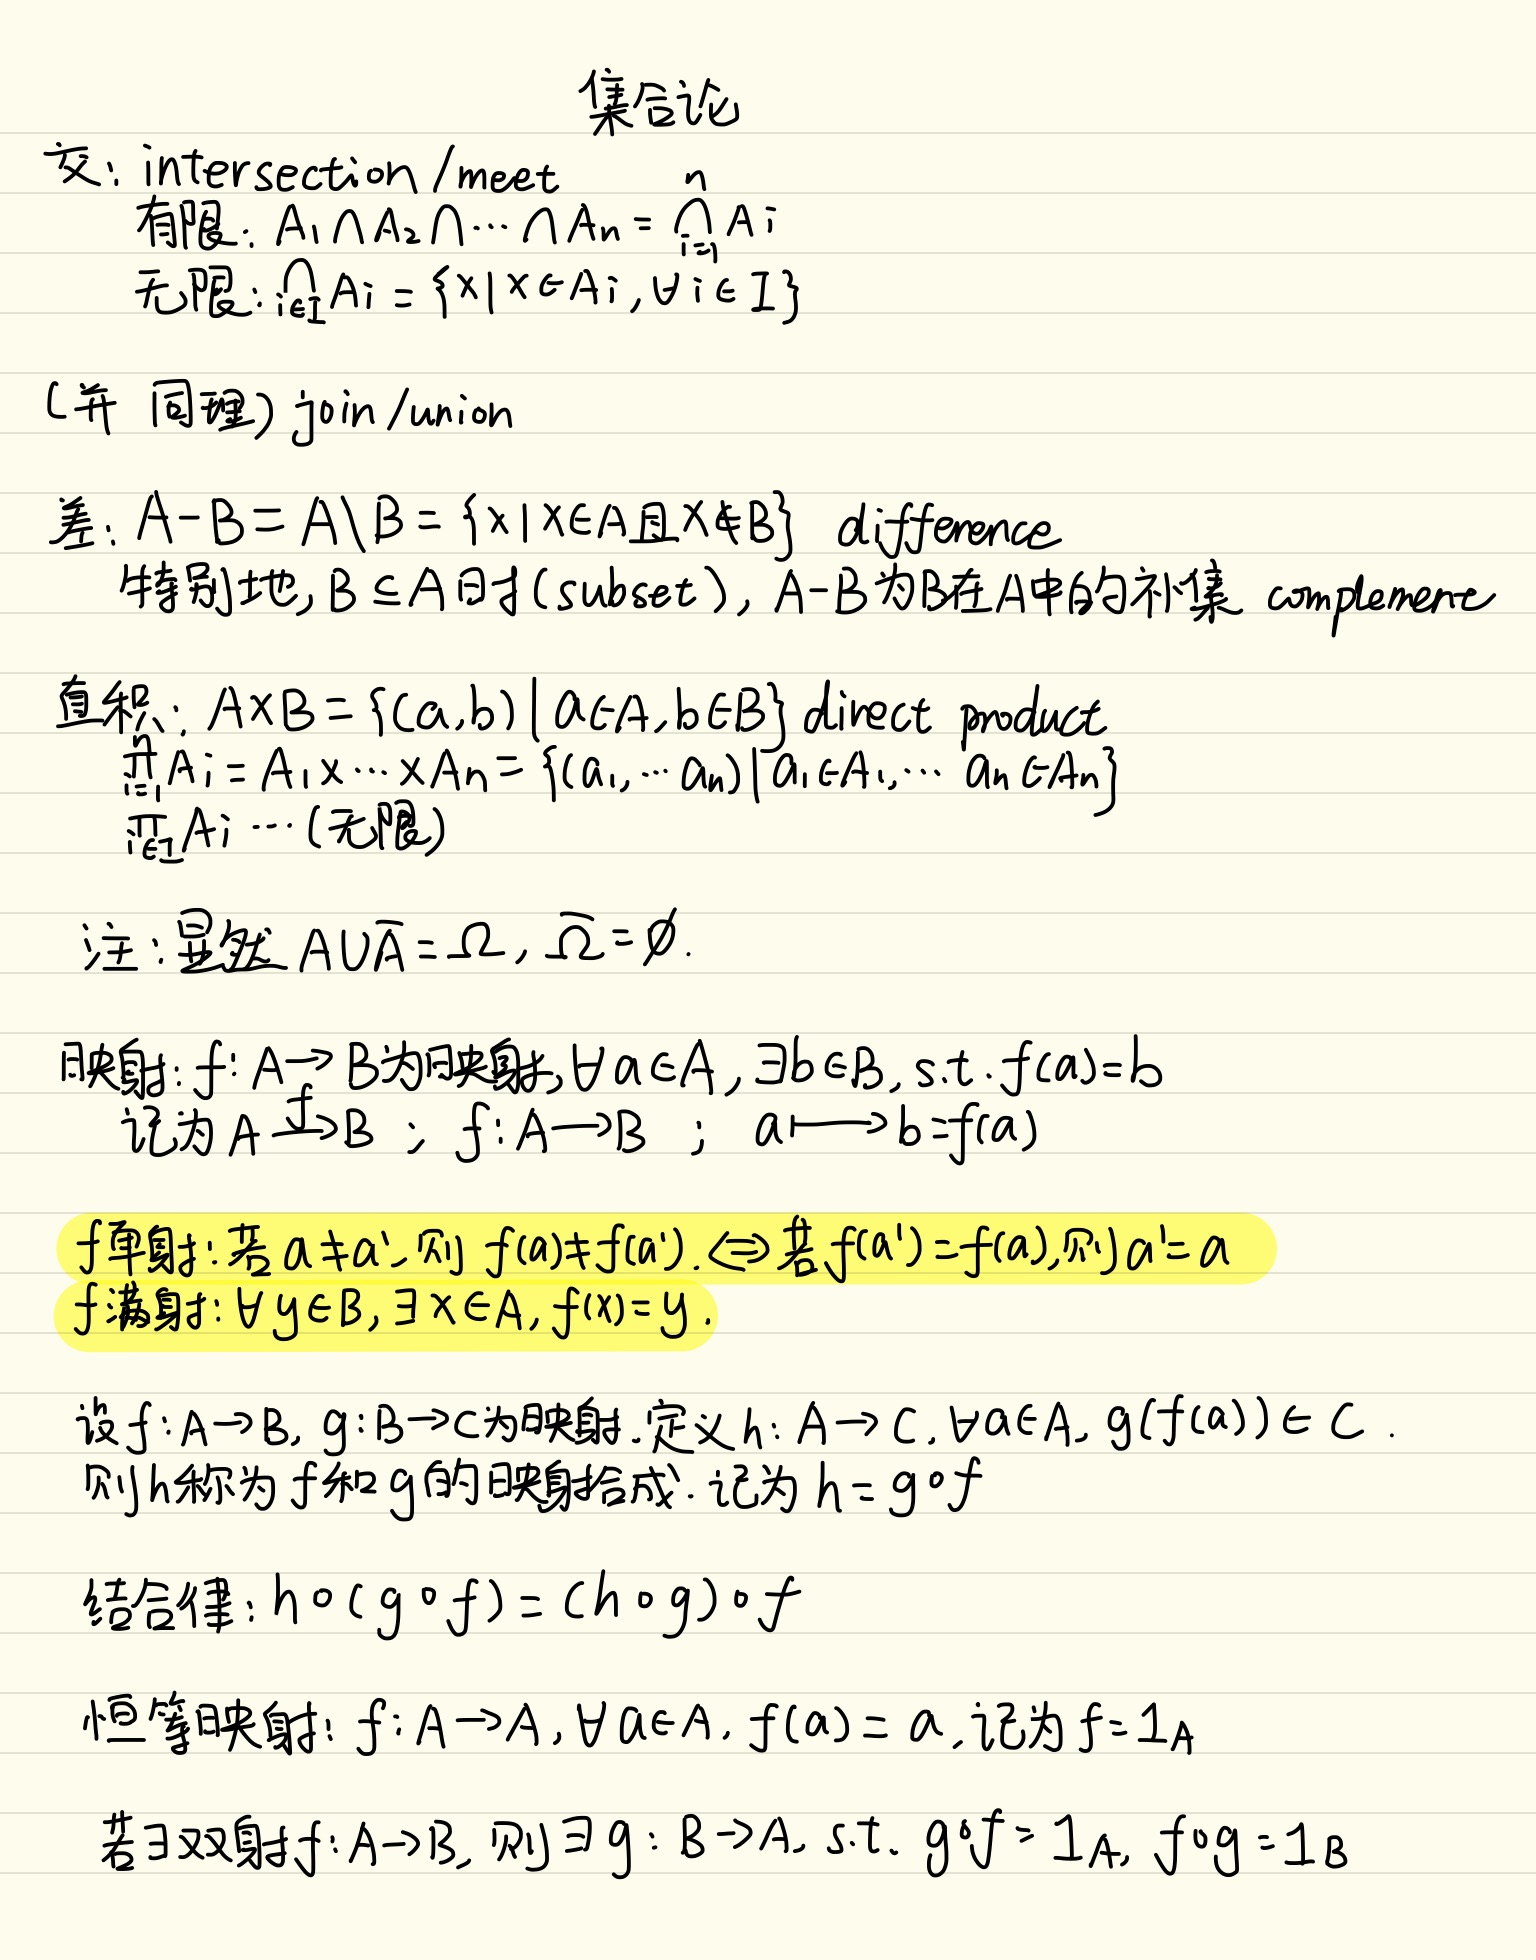 集合论
交: intersection/meet
有限: A₁∩A₂∩⋯∩Aₙ = ⋂ⁿᵢ₌₁ Aᵢ
无限: ⋂_{i∈I} Aᵢ = {x|x∈Aᵢ, ∀i∈I}
(并 同理) join/union
差: A-B = A\B = {x|x∈A且x∉B} difference
特别地, B⊆A时(subset), A-B为B在A中的补集 complement
直积: A×B = {(a,b)|a∈A, b∈B} direct product
∏ⁿᵢ₌₁ Aᵢ = A₁×⋯×Aₙ = {(a₁,⋯aₙ)|a₁∈A₁,⋯ aₙ∈Aₙ}
∏_{i∈I} Aᵢ ⋯ (无限)
注: 显然 A∪A̅ = Ω, Ω̅ = ∅.
映射: f: A→B为映射, ∀a∈A, ∃b∈B, s.t. f(a)=b
记为 A →^f B ; f: A→B ; a↦b=f(a)
f单射: 若a≠a', 则 f(a)≠f(a'). ⇔ 若f(a')=f(a), 则a'=a
f满射: ∀y∈B, ∃x∈A, f(x)=y.
设f: A→B, g: B→C为映射. 定义h: A→C, ∀a∈A, g(f(a))∈C.
则h称为f和g的映射拾成. 记为 h=g∘f
结合律: h∘(g∘f)=(h∘g)∘f
恒等映射: f: A→A, ∀a∈A, f(a)=a, 记为f=1_A
若∃双射f: A→B, 则∃g: B→A, s.t. g∘f=1_A, f∘g=1_B